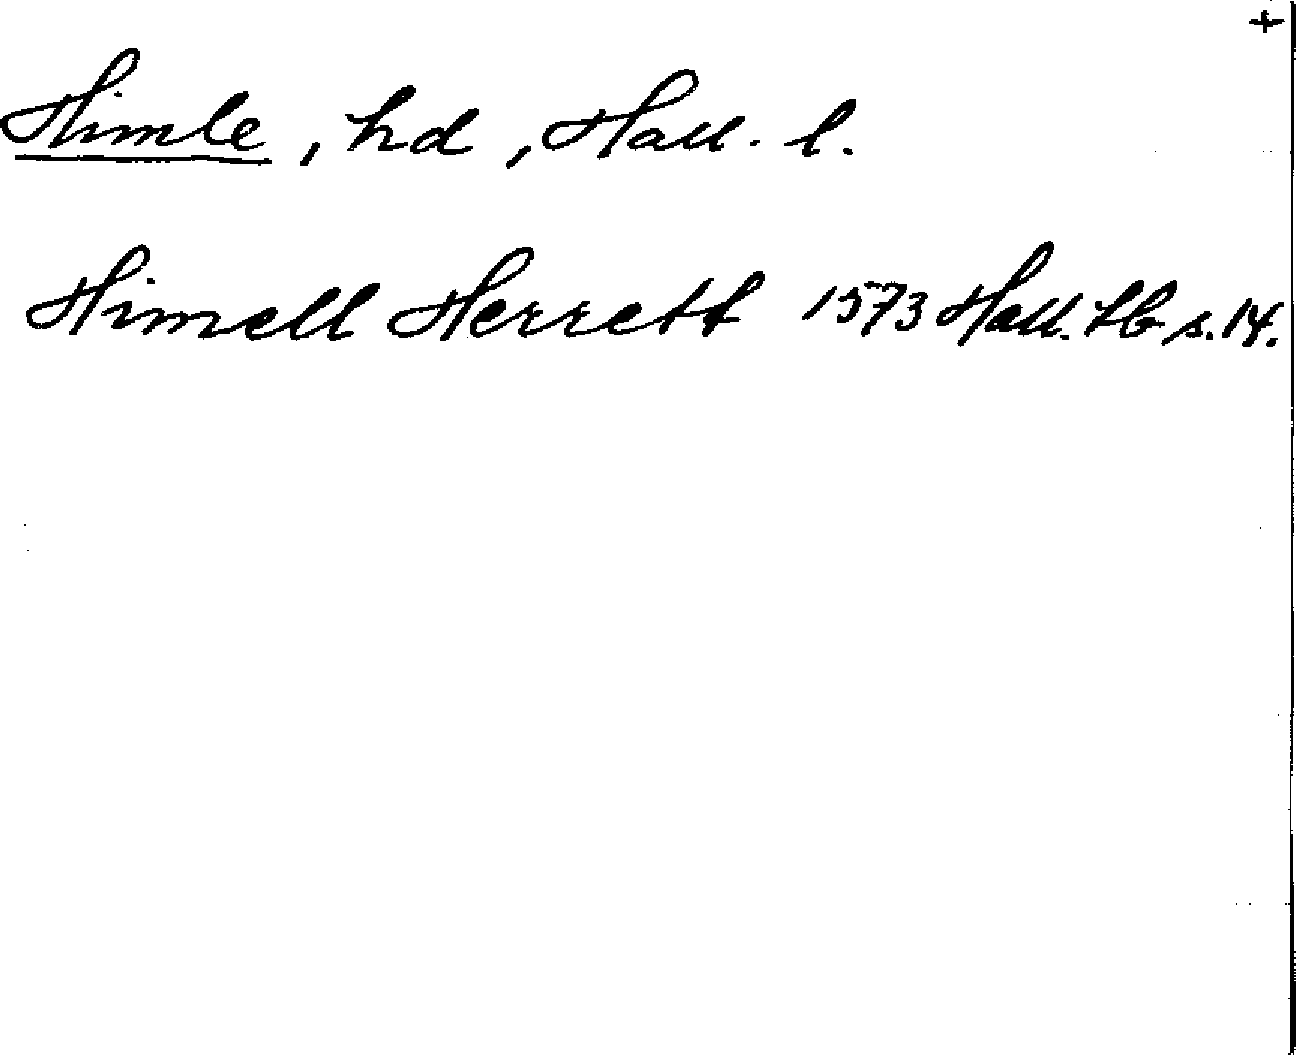 +
Himle, hd, Hall. l.
Himell Herrett 1573 Hall. tb s. 14.